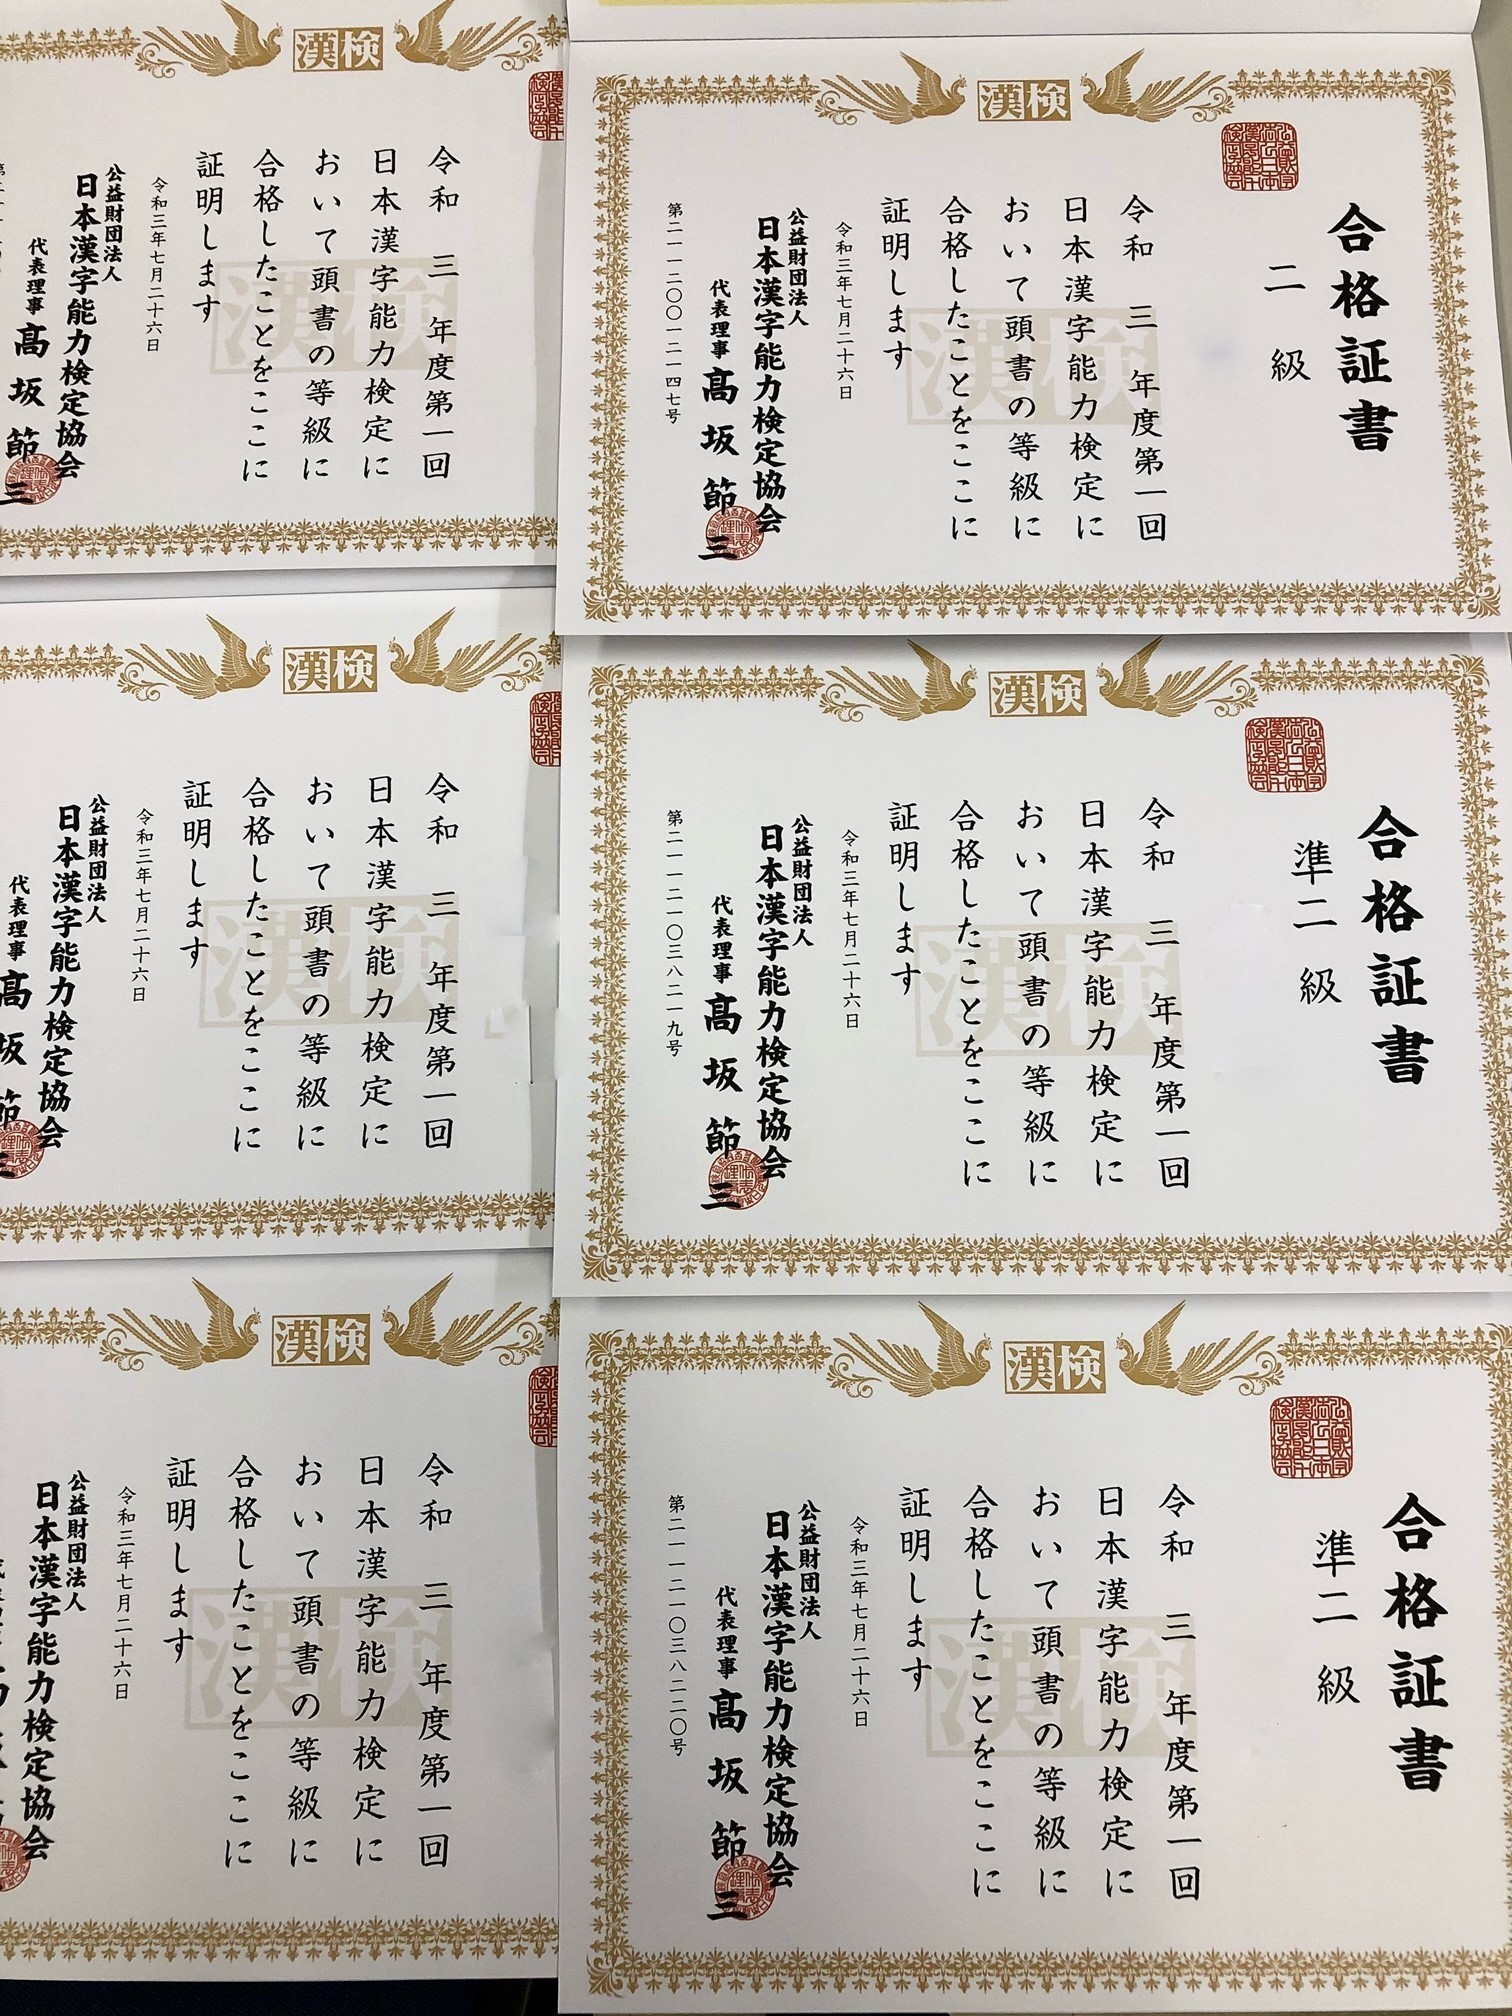 漢検
合格証書
二級
令和三年度第一回
日本漢字能力検定に
おいて頭書の等級に
合格したことをここに
証明します
令和三年七月二十六日
公益財団法人
日本漢字能力検定協会
代表理事 髙坂節三
第二一一二〇〇一二一四七号
漢検
合格証書
準二級
令和三年度第一回
日本漢字能力検定に
おいて頭書の等級に
合格したことをここに
証明します
令和三年七月二十六日
公益財団法人
日本漢字能力検定協会
代表理事 髙坂節三
第二一一二一〇三八二一九号
漢検
合格証書
準二級
令和三年度第一回
日本漢字能力検定に
おいて頭書の等級に
合格したことをここに
証明します
令和三年七月二十六日
公益財団法人
日本漢字能力検定協会
代表理事 髙坂節三
第二一一二一〇三八二二〇号
漢検
令和三年度第一回
日本漢字能力検定に
おいて頭書の等級に
合格したことをここに
証明します
令和三年七月二十六日
公益財団法人
日本漢字能力検定協会
代表理事 髙坂節三
漢検
令和三年度第一回
日本漢字能力検定に
おいて頭書の等級に
合格したことをここに
証明します
令和三年七月二十六日
公益財団法人
日本漢字能力検定協会
代表理事 髙坂節三
漢検
令和三年度第一回
日本漢字能力検定に
おいて頭書の等級に
合格したことをここに
証明します
令和三年七月二十六日
公益財団法人
日本漢字能力検定協会